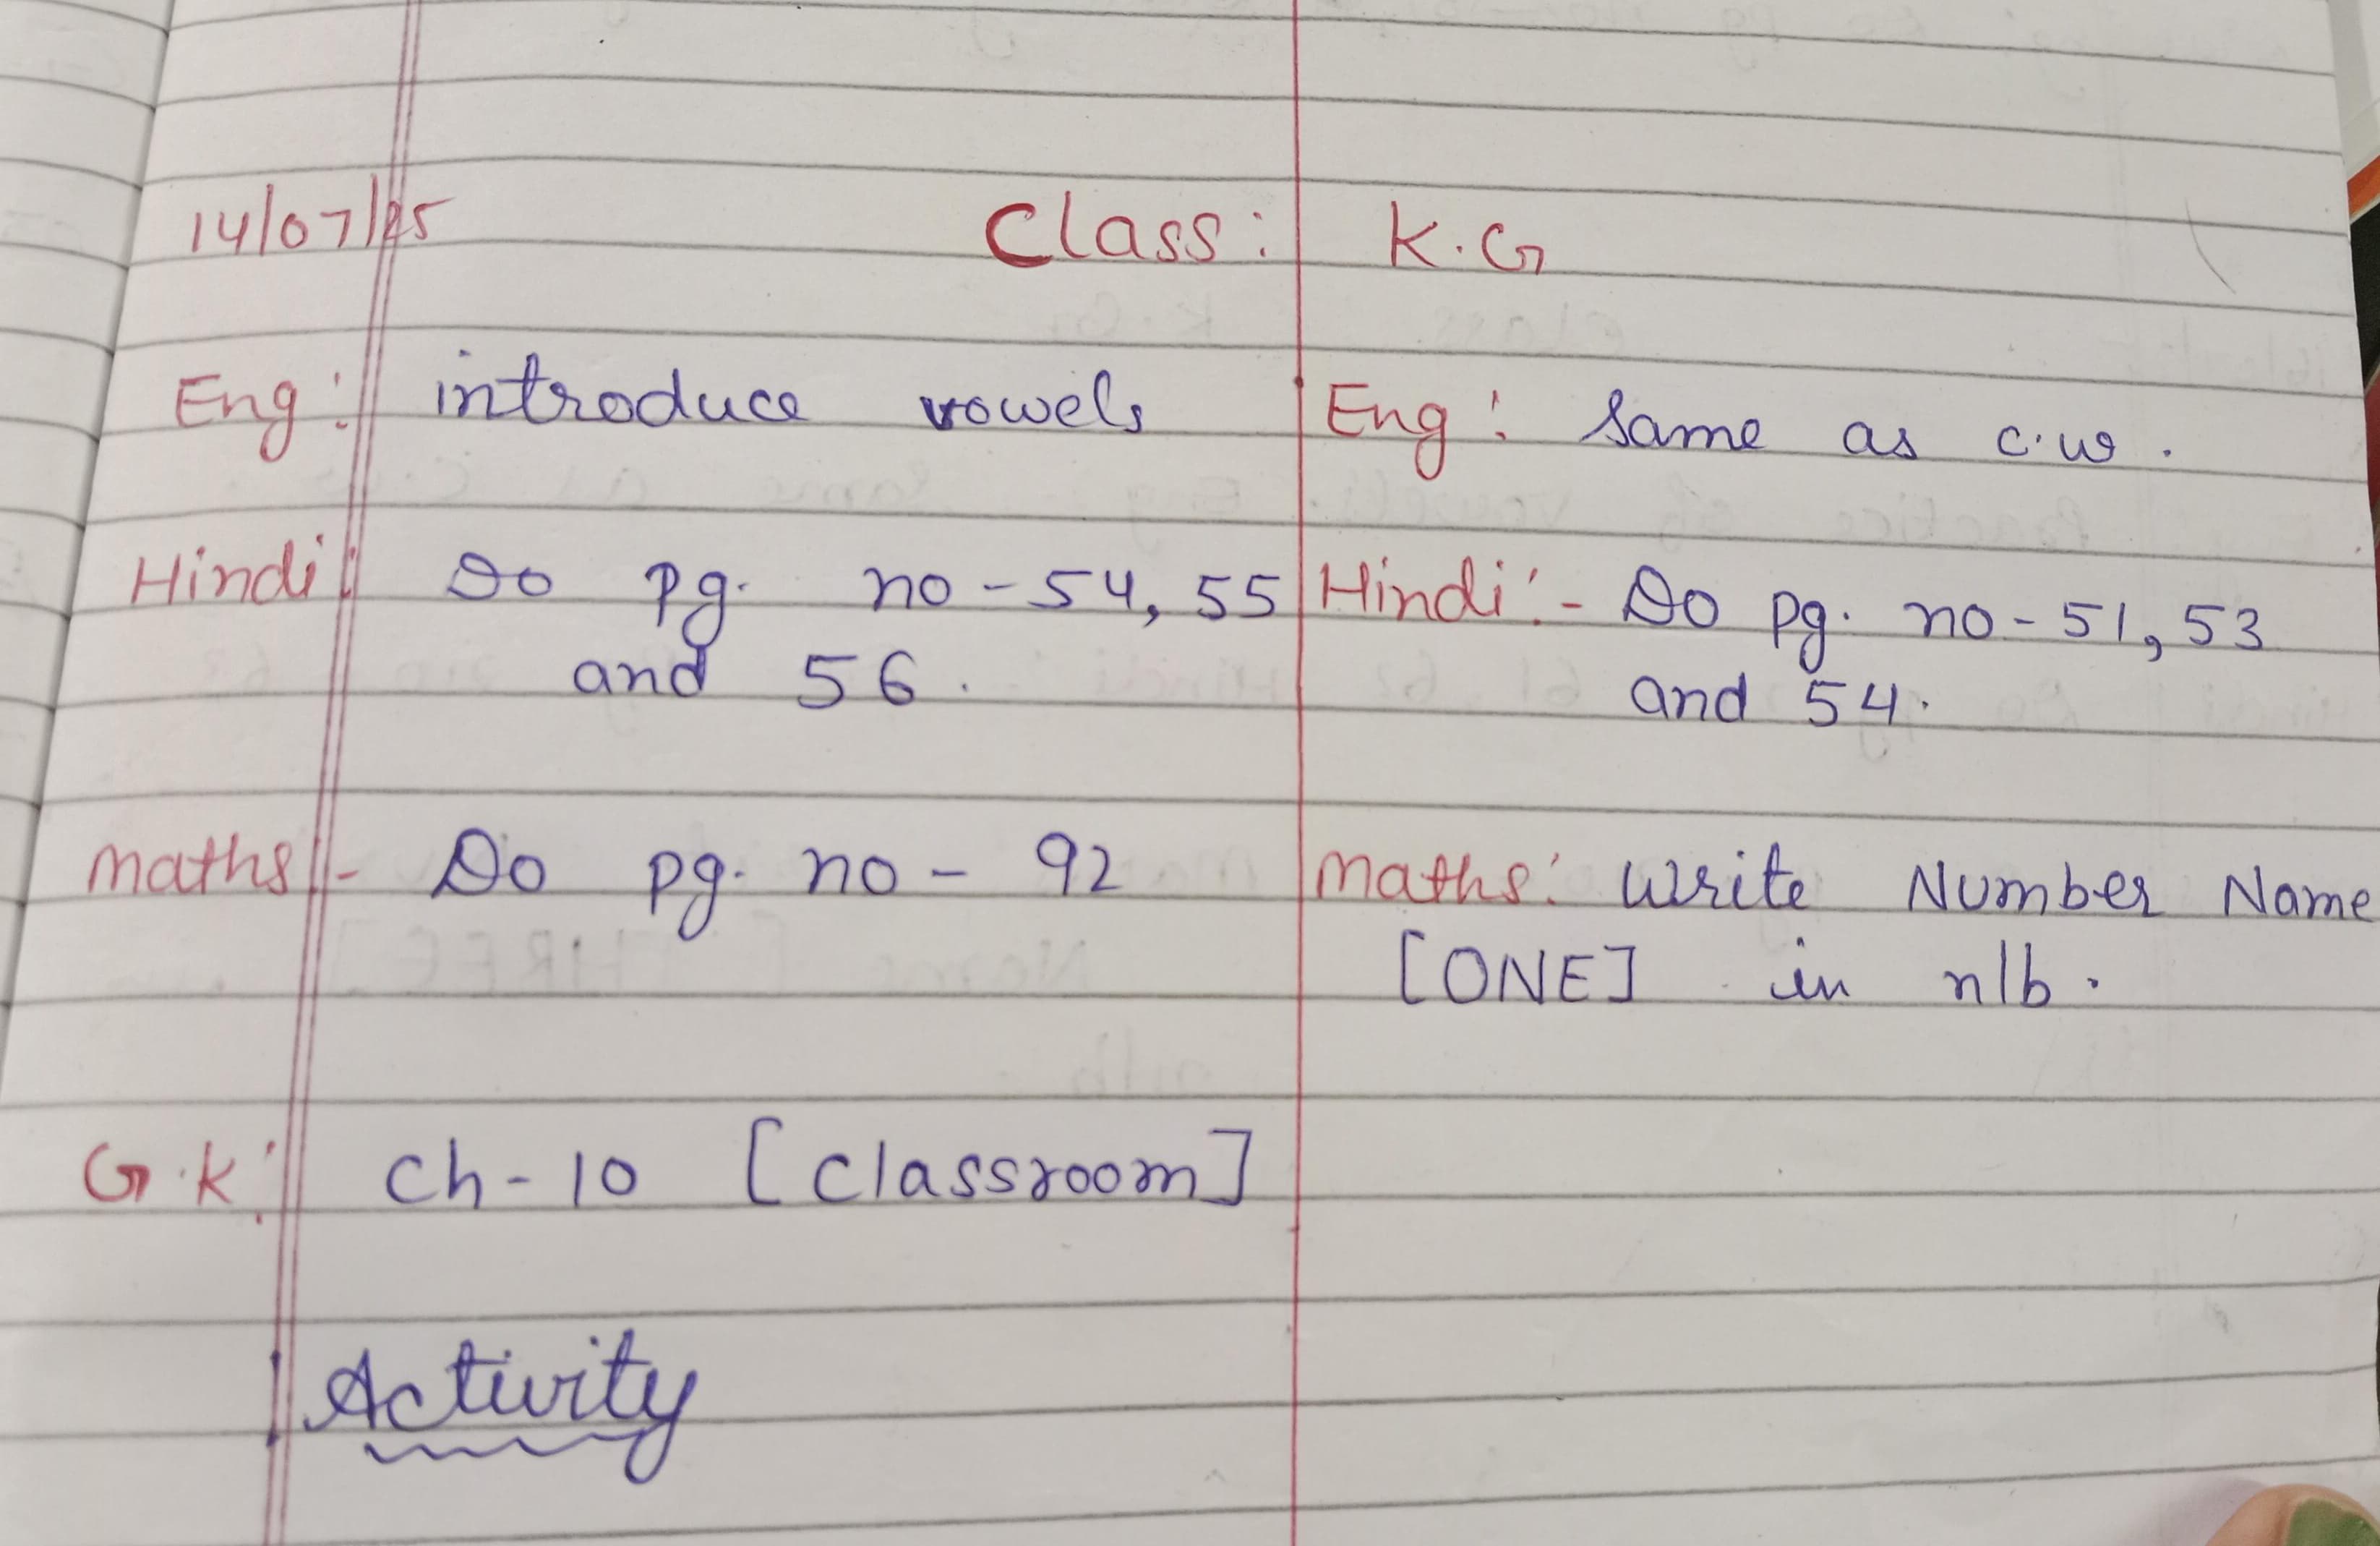 14/07/25 Class: K.G
Eng: introduce vowels
Hindi: Do pg. no - 54, 55
and 56.
Maths:- Do pg. no - 92
G.K: Ch - 10 [Classroom]
Activity
Eng: Same as c.w.
Hindi:- Do pg. no - 51, 53
and 54.
Maths: Write Number Name
[ONE] in n/b.